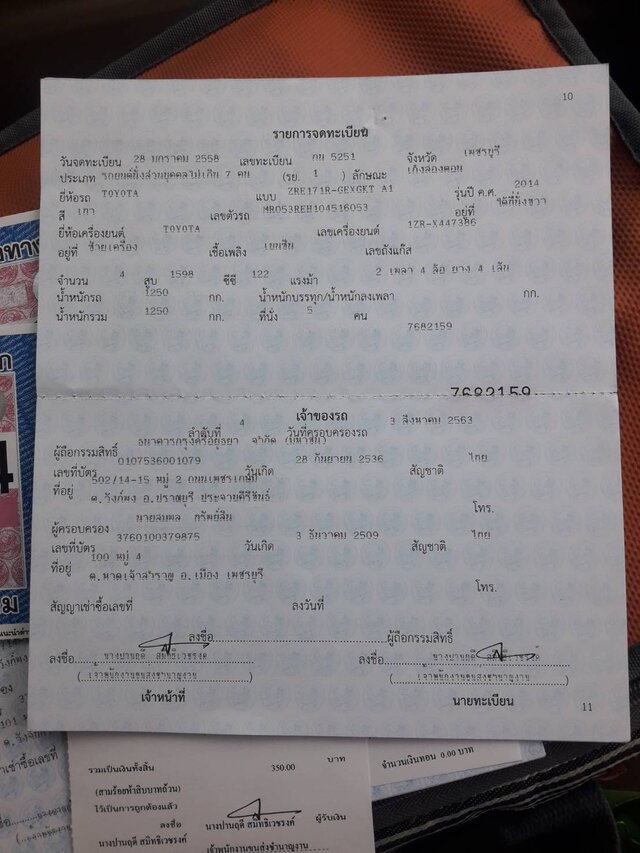 10
รายการจดทะเบียน
วันจดทะเบียน 28 มกราคม 2558 เลขทะเบียน กน 5251 จังหวัด เพชรบุรี
ประเภท รถยนต์นั่งส่วนบุคคลไม่เกิน 7 คน (รย. 1 ) ลักษณะ เก๋งสองตอน
ยี่ห้อรถ TOYOTA แบบ ZRE171R-GEXGKT A1 รุ่นปี ค.ศ. 2014
สี เทา เลขตัวรถ MR053REH104516053 อยู่ที่ ใต้ที่นั่งขวา
ยี่ห้อเครื่องยนต์ TOYOTA เลขเครื่องยนต์ 1ZR-X447386
อยู่ที่ ซ้ายเครื่อง เชื้อเพลิง เบนซิน เลขถังแก๊ส
จำนวน 4 สูบ 1598 ซีซี 122 แรงม้า 2 เพลา 4 ล้อ ยาง 4 เส้น
น้ำหนักรถ 1250 กก. น้ำหนักบรรทุก/น้ำหนักลงเพลา กก.
น้ำหนักรวม 1250 กก. ที่นั่ง 5 คน
7682159
7682159
เจ้าของรถ
ลำดับที่ 4 วันที่ครอบครองรถ 3 สิงหาคม 2563
ผู้ถือกรรมสิทธิ์ ธนาคารกรุงศรีอยุธยา จำกัด (มหาชน)
เลขที่บัตร 0107536001079 วันเกิด 28 กันยายน 2536 สัญชาติ ไทย
ที่อยู่ 502/14-15 หมู่ 2 ถนนเพชรเกษม
ต.วังก์พง อ.ปราณบุรี ประจวบคีรีขันธ์ โทร.
ผู้ครอบครอง นายสมพล ทรัพย์สิน
เลขที่บัตร 3760100379875 วันเกิด 3 ธันวาคม 2509 สัญชาติ ไทย
ที่อยู่ 100 หมู่ 4
ต.หาดเจ้าสำราญ อ.เมือง เพชรบุรี โทร.
สัญญาเช่าซื้อเลขที่ ลงวันที่
ลงชื่อ ผู้ถือกรรมสิทธิ์
ลงชื่อ นางปานฤดี สมิทธิเวชรงค์ ลงชื่อ นางปานฤดี สมิทธิเวชรงค์
( เจ้าพนักงานขนส่งชำนาญงาน ) ( เจ้าพนักงานขนส่งชำนาญงาน )
เจ้าหน้าที่ นายทะเบียน
11
รวมเป็นเงินทั้งสิ้น 350.00 บาท จำนวนเงินทอน 0.00 บาท
(สามร้อยห้าสิบบาทถ้วน)
ไว้เป็นการถูกต้องแล้ว
ลงชื่อ ผู้รับเงิน
นางปานฤดี สมิทธิเวชรงค์
นางปานฤดี สมิทธิเวชรงค์ เจ้าพนักงานขนส่งชำนาญงาน